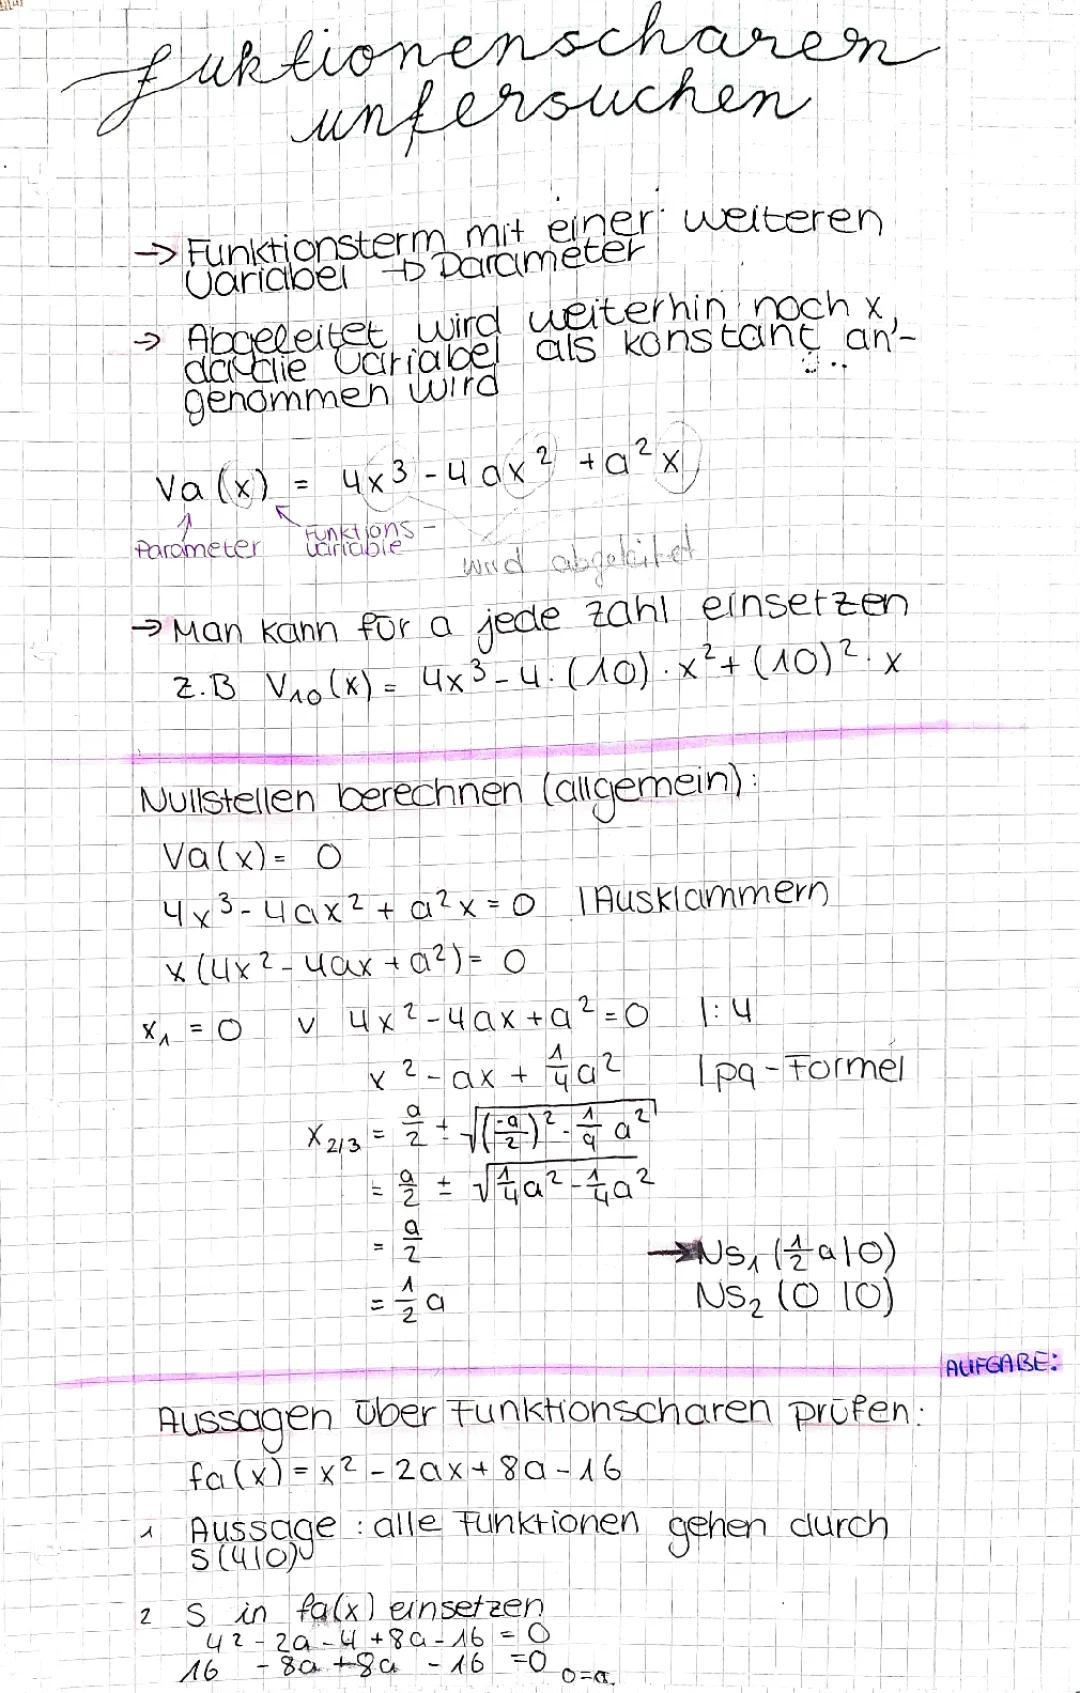 Fuktionenscharen
untersuchen
→ Funktionsterm mit einer weiteren
Variabel → Parameter
→ Abgeleitet wird weiterhin noch x,
da die Variabel als konstant an-
genommen wird
Va (x) = 4x³ - 4ax² + a²x
Parameter Funktions-
variable
wird abgeleitet
→ Man kann für a jede Zahl einsetzen
z.B V₁₀(x) = 4x³ - 4·(10)·x² + (10)²·x
Nullstellen berechnen (allgemein):
Va(x) = 0
4x³ - 4ax² + a²x = 0 | Ausklammern
x (4x² - 4ax + a²) = 0
x₁ = 0 v 4x² - 4ax + a² = 0 | : 4
x² - ax + 1/4 a² | pq-Formel
x₂/₃ = a/2 ± √((-a/2)² - 1/4 a²)
= a/2 ± √(1/4 a² - 1/4 a²)
= a/2 → NS₁ (1/2 a|0)
= 1/2 a NS₂ (0|0)
AUFGABE:
Aussagen über Funktionscharen prüfen:
fa(x) = x² - 2ax + 8a - 16
1 Aussage : alle Funktionen gehen durch
S(4|0)
2 S in fa(x) einsetzen
4² - 2a - 4 + 8a - 16 = 0
16 - 8a + 8a - 16 = 0 0=a.